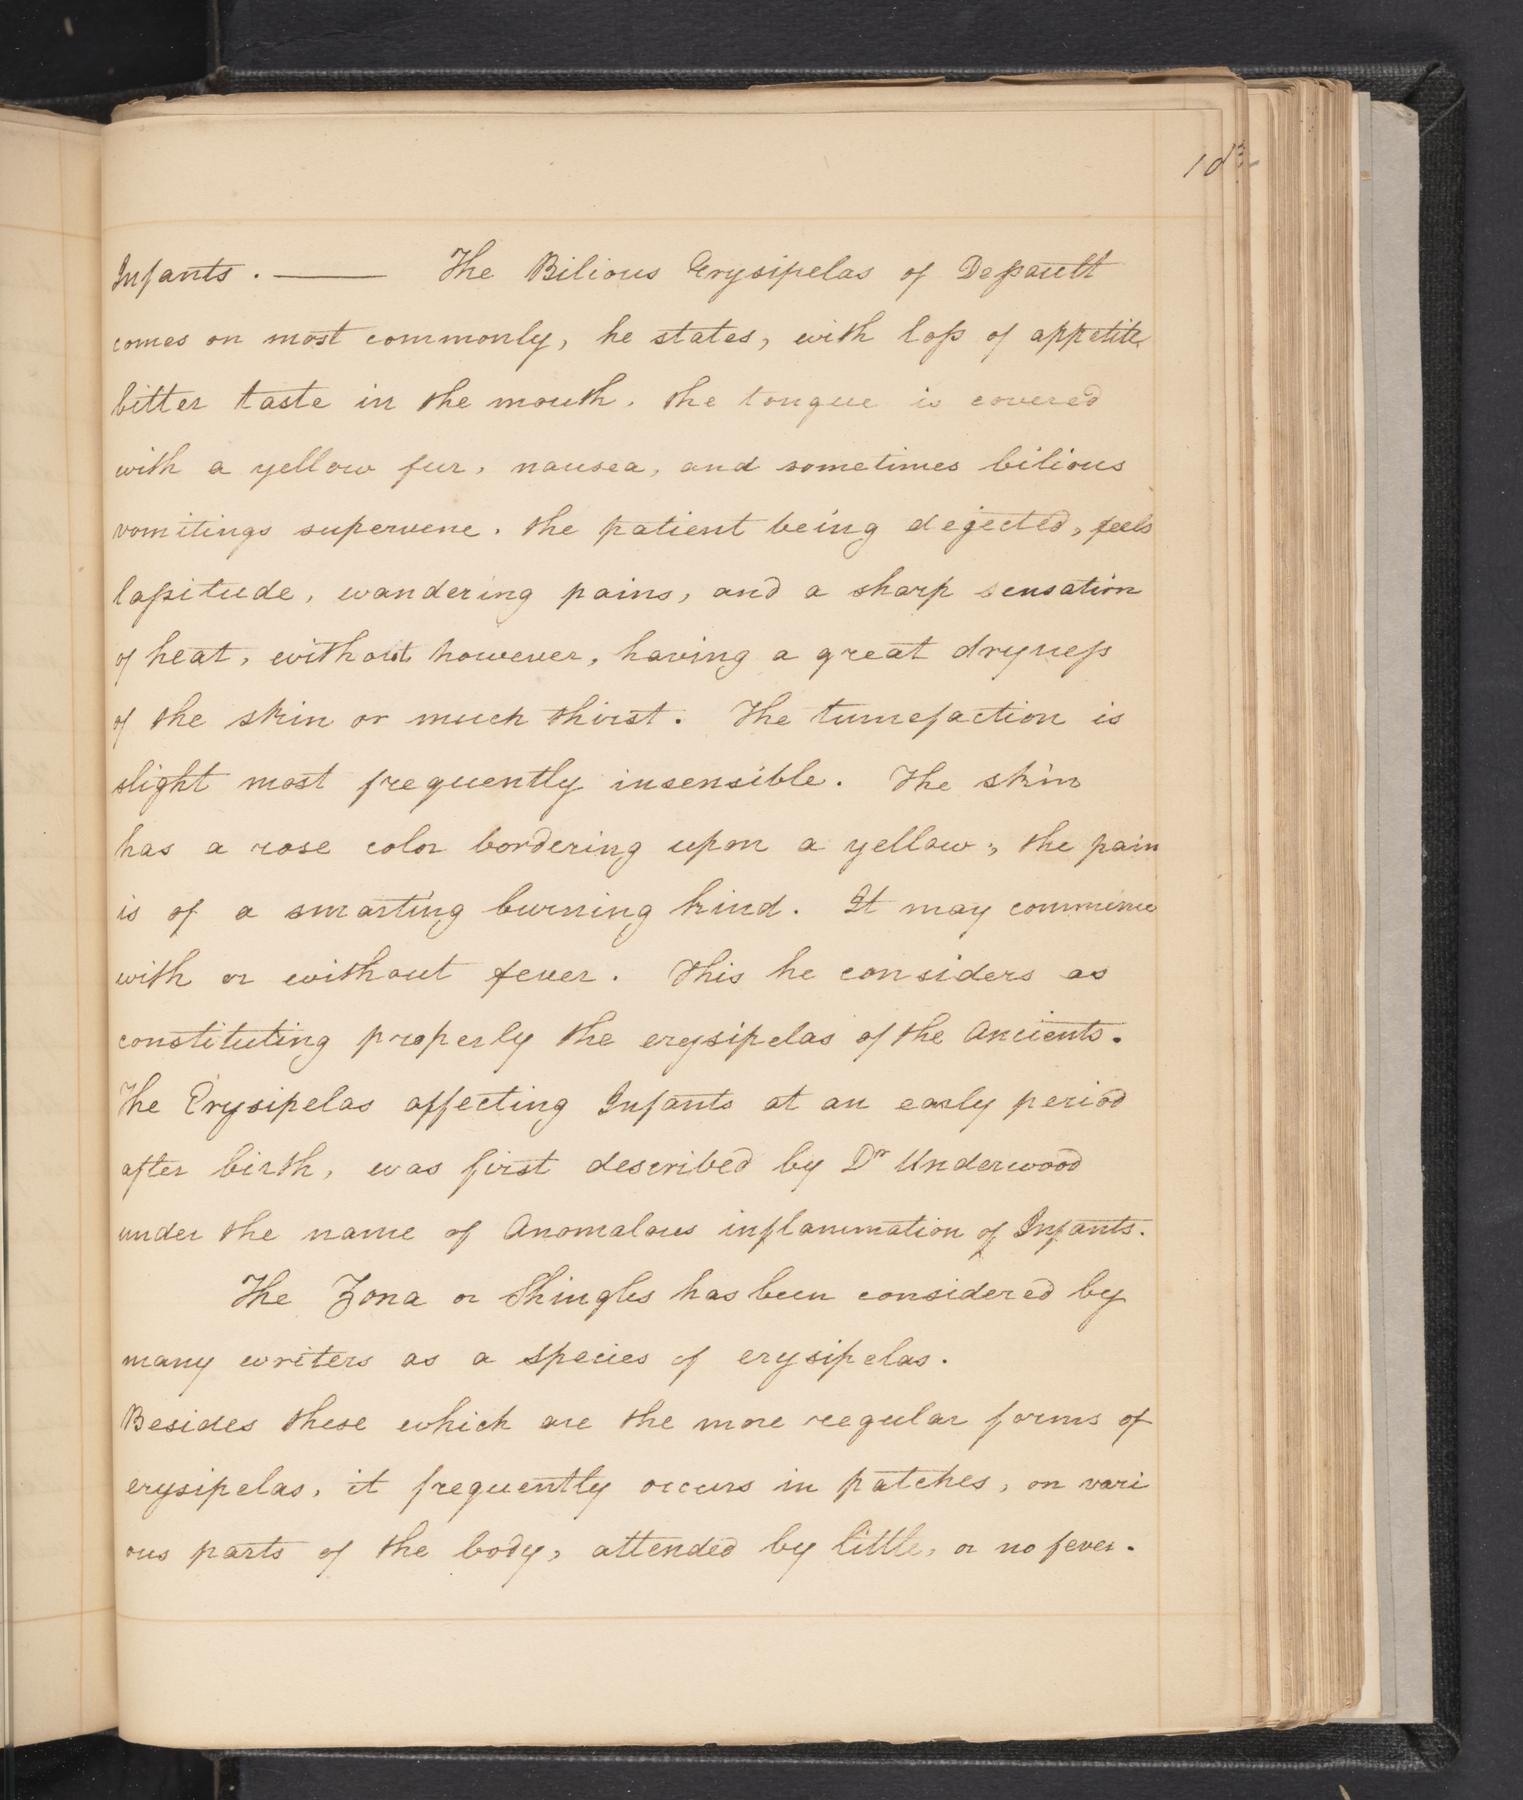 Infants. — The Bilious Erysipelas of Desault
comes on most commonly, he states, with loss of appetite
bitter taste in the mouth. the tongue is covered
with a yellow fur, nausea, and sometimes bilious
vomitings supervene. the patient being dejected, feels
lassitude, wandering pains, and a sharp sensation
of heat, without however, having a great dryness
of the skin or much thirst. The tumefaction is
slight most frequently insensible. The skin
has a rose color bordering upon a yellow, the pain
is of a smarting burning kind. It may commence
with or without fever. This he considers as
constituting properly the erysipelas of the Ancients.
The Erysipelas affecting Infants at an early period
after birth, was first described by Dr Underwood
under the name of Anomalous inflammation of Infants.
The Zona or Shingles has been considered by
many writers as a species of erysipelas.
Besides these which are the more regular forms of
erysipelas, it frequently occurs in patches, on vari
ous parts of the body, attended by little, or no fever.